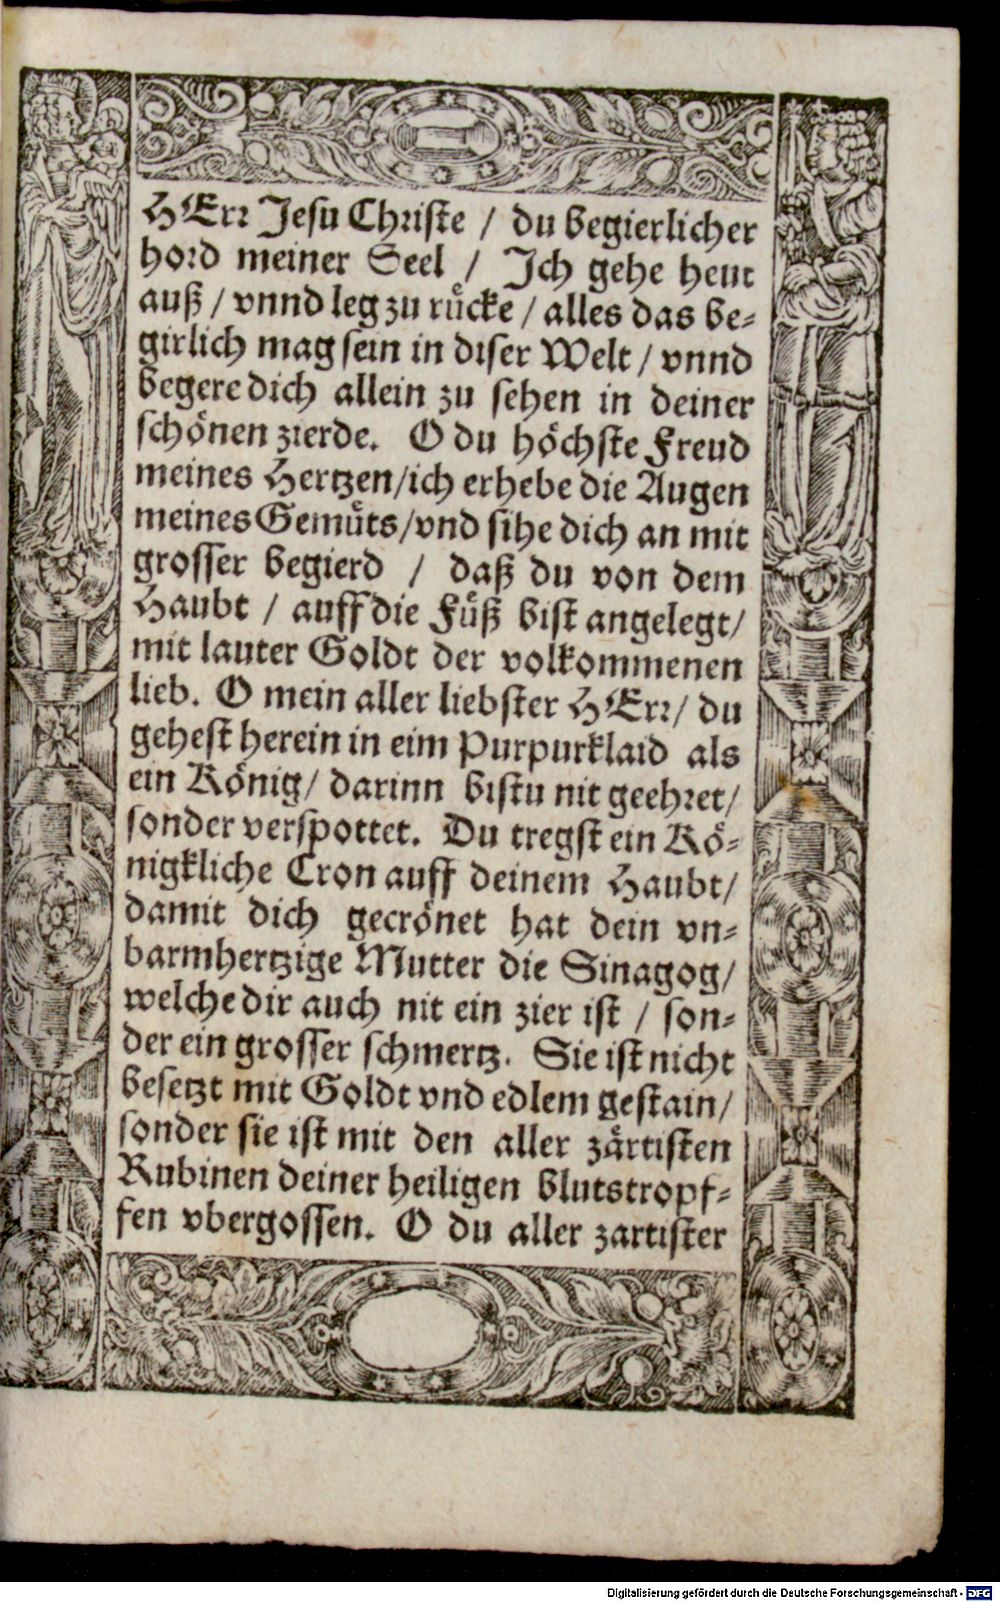 HErr Jesu Christe / du begierlicher
hord meiner Seel / Ich gehe heut
auß / vnnd leg zu růcke / alles das be-
girlich mag sein in diser Welt / vnnd
begere dich allein zu sehen in deiner
schönen zierde. O du höchste Freud
meines Hertzen/ich erhebe die Augen
meines Gemůts/vnd sihe dich an mit
grosser begierd / daß du von dem
Haubt / auff die Fůß bist angelegt/
mit lauter Goldt der volkommenen
lieb. O mein aller liebster HErr/ du
gehest herein in eim Purpurklaid als
ein König/ darinn bistu nit geehret/
sonder verspottet. Du tregst ein Kö-
nigkliche Cron auff deinem Haubt/
damit dich gecrönet hat dein vn-
barmhertzige Mutter die Sinagog/
welche dir auch nit ein zier ist / son-
der ein grosser schmertz. Sie ist nicht
besetzt mit Goldt vnd edlem gestain/
sonder sie ist mit den aller zärtisten
Rubinen deiner heiligen blutstropf-
fen vbergossen. O du aller zartister
Digitalisierung gefördert durch die Deutsche Forschungsgemeinschaft - DFG